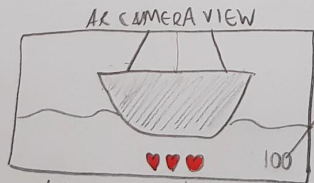 AR CAMERA VIEW
100